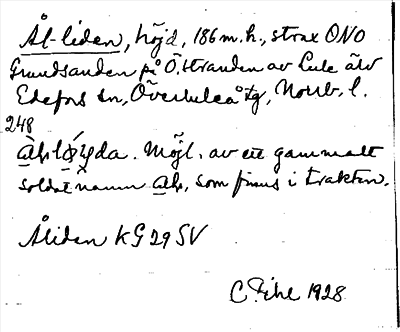 Ål-liden, höjd, 186 m.h., strax ONO
Grundsanden på Ö. stranden av Lule älv
Edefors sn, Överluleå tg, Norrb. l.
248
Möjl. av ett gammalt
soldatnamn Ah, som finns i trakten.
Åliden KG 29 SV
C Pihl 1928